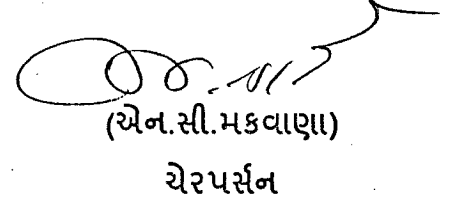 (એન.સી.મકવાણા)
ચેરપર્સન